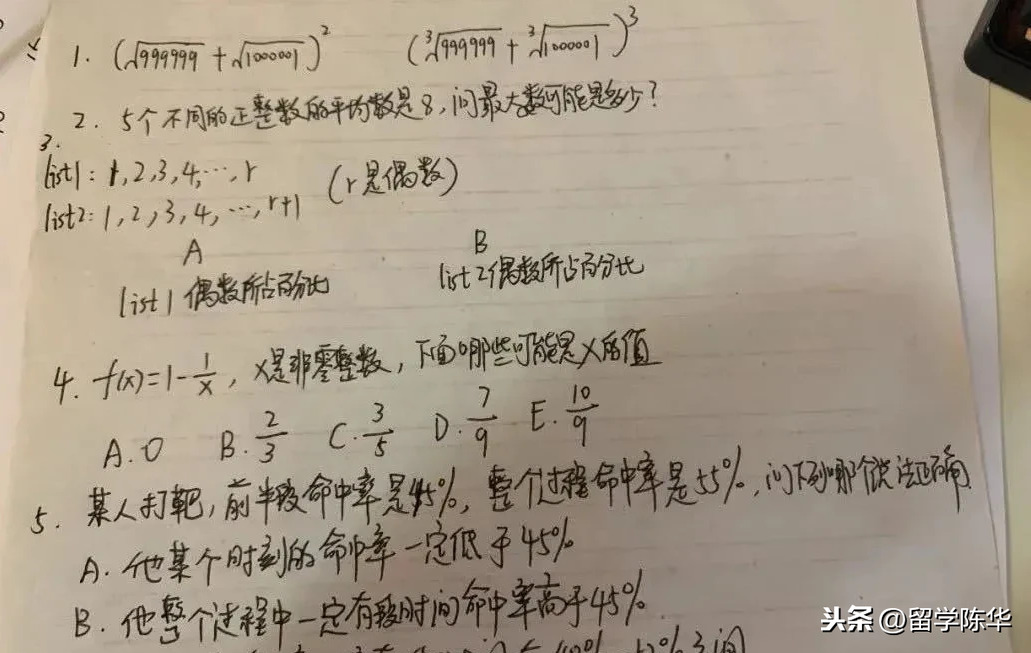 1. (√999999 + √1000001)² (∛999999 + ∛1000001)³
2. 5个不同的正整数的平均数是8,问最大数可能是多少?
3.
list1: 1,2,3,4,…,r (r是偶数)
list2: 1,2,3,4,…,r+1
A B
list1偶数所占百分比 list2偶数所占百分比
4. f(x)=1-1/x, x是非零整数,下面哪些可能是x的值
A.0 B.2/3 C.3/5 D.7/9 E.10/9
5. 某人打靶,前半段命中率是45%,整个过程命中率是55%,问下列哪个说法正确
A. 他某个时刻的命中率一定低于45%
B. 他整个过程中一定有段时间命中率高于45%
头条 @留学陈华